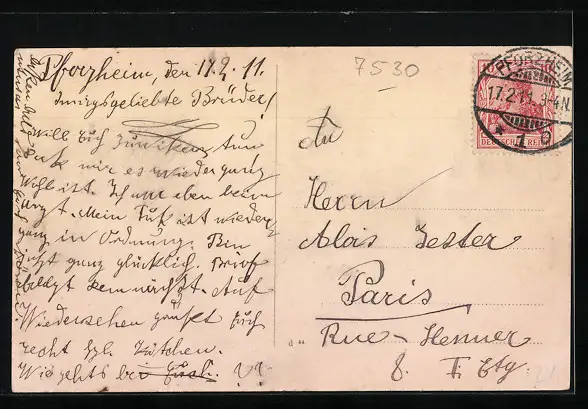 Pforzheim, den 17.2.11.
Innigsgeliebte Brüder!
Will Euch zu wissen tun
daß mir es wieder ganz
Wohl ist. Ich war eben beim
Arzt. Mein Fuß ist wieder
ganz in Ordnung. Bin
jetzt ganz glücklich. Brief
folgt demnächst. Auf
Wiedersehen grüßt Euch
recht hzl.
Wie gehts bei Euch. ??
7530
PFORZHEIM
17.2.11. 3-4N.
* 1 g
DEUTSCHES REICH
An
Herrn
Alois Zester
Paris
Rue Henner
8. II. Etg.